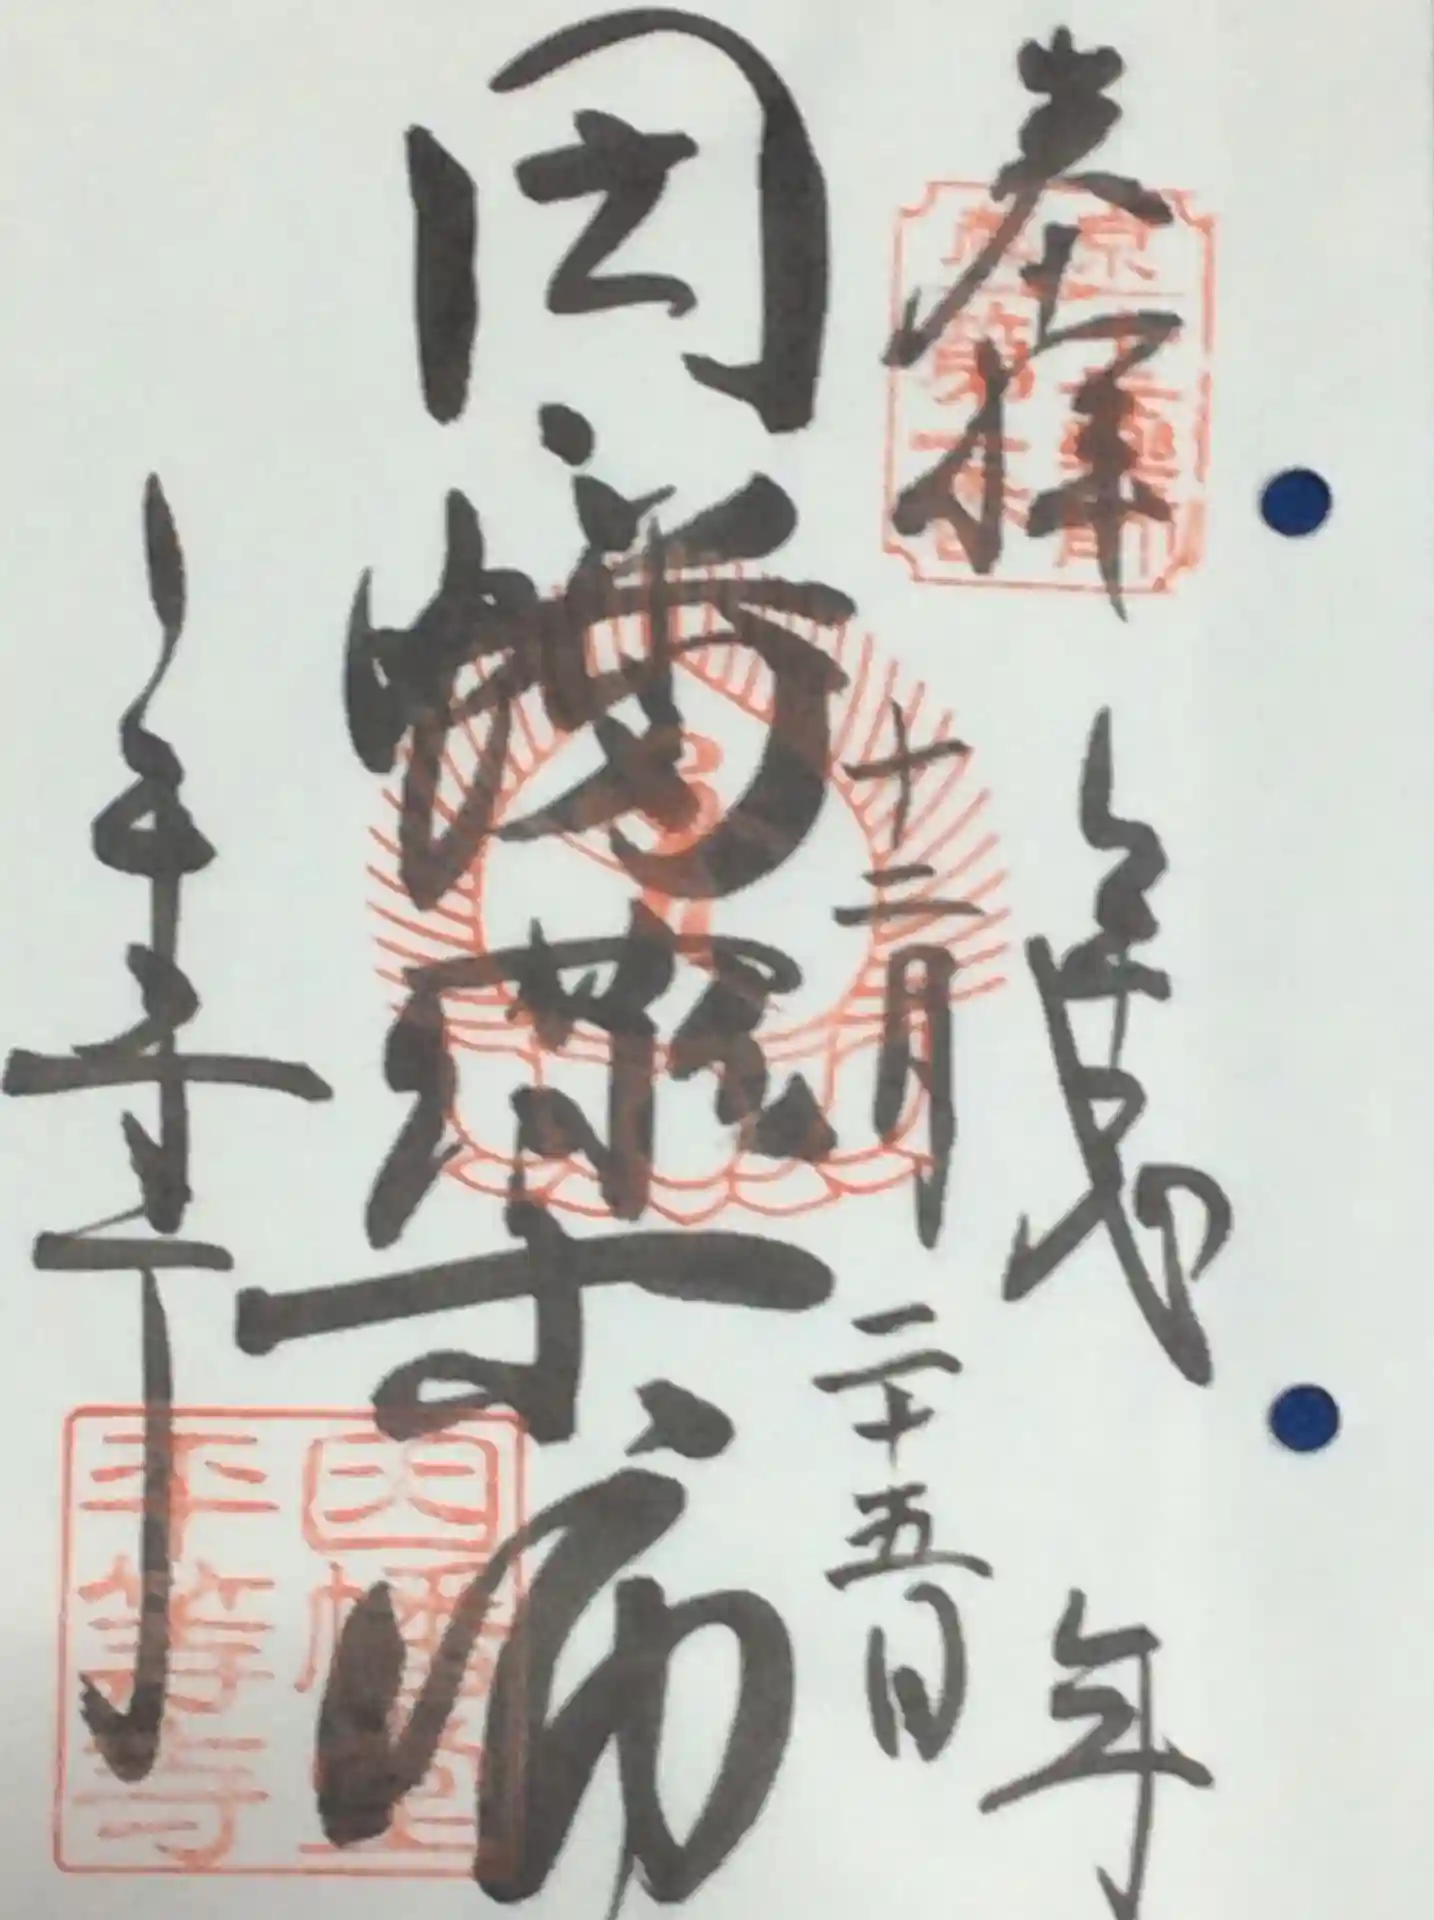 奉拝
年
十二月二十五日
因幡薬師
平等寺
因幡堂
平等寺